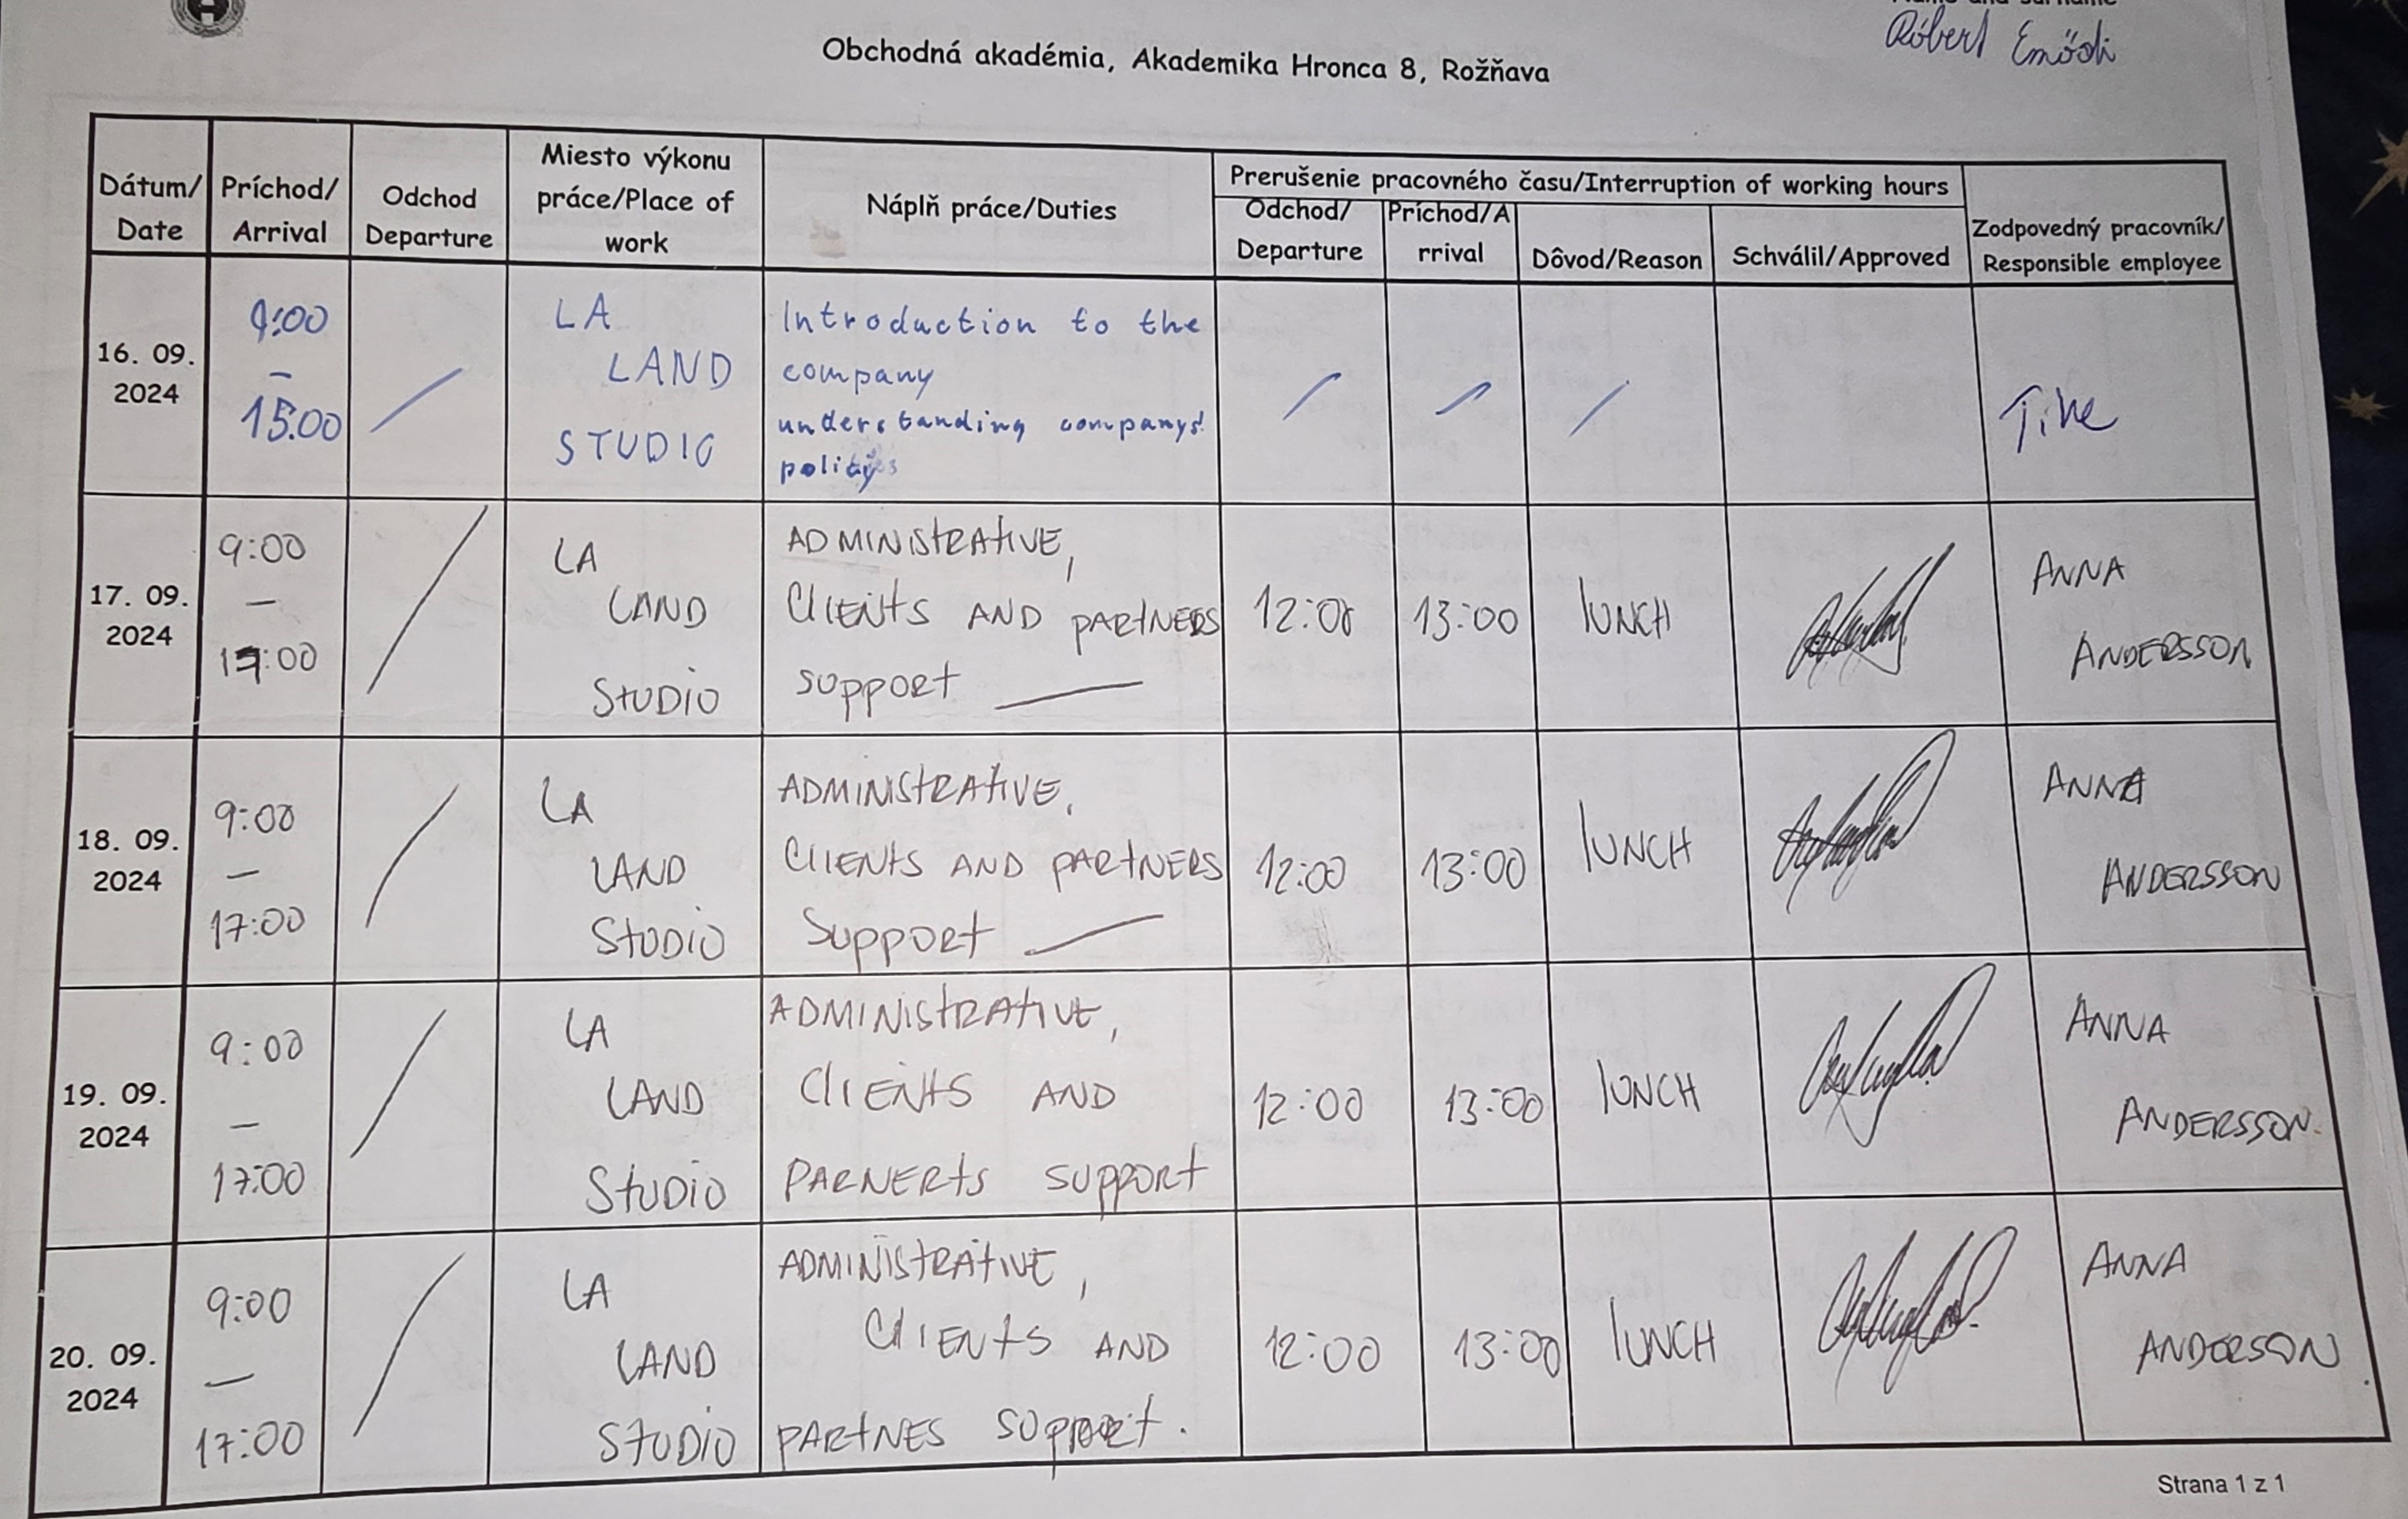 Róbert Emödi
Obchodná akadémia, Akademika Hronca 8, Rožňava
Dátum/
Date
Príchod/
Arrival
Odchod
Departure
Miesto výkonu
práce/Place of
work
Náplň práce/Duties
Prerušenie pracovného času/Interruption of working hours
Odchod/
Departure
Príchod/A
rrival
Dôvod/Reason
Schválil/Approved
Zodpovedný pracovník/
Responsible employee
16. 09.
2024
9:00
–
15.00
LA
LAND
STUDIO
Introduction to the
company
understanding companys'
17. 09.
2024
9:00
—
17:00
LA
LAND
StUDiO
ADMINIStRAtIVE,
ClIENtS AND PARtNERS
support —
12:00
13:00
lUNCH
ANNA
ANDERSSON
18. 09.
2024
9:00
—
17:00
LA
LAND
StUDiO
ADMINIStRAtIVE,
ClIENtS AND PARtNERS
Support —
12:00
13:00
lUNCH
ANNA
ANDERSSON
19. 09.
2024
9:00
—
17:00
LA
LAND
StUDiO
ADMINIStRAtIVE,
ClIENtS AND
PARNERtS support
12:00
13:00
lUNCH
ANNA
ANDERSSON.
20. 09.
2024
9:00
—
17:00
LA
LAND
StUDiO
ADMINIStRAtIVE,
ClIENtS AND
PARtNES support.
12:00
13:00
lUNCH
ANNA
ANDERSON
Strana 1 z 1